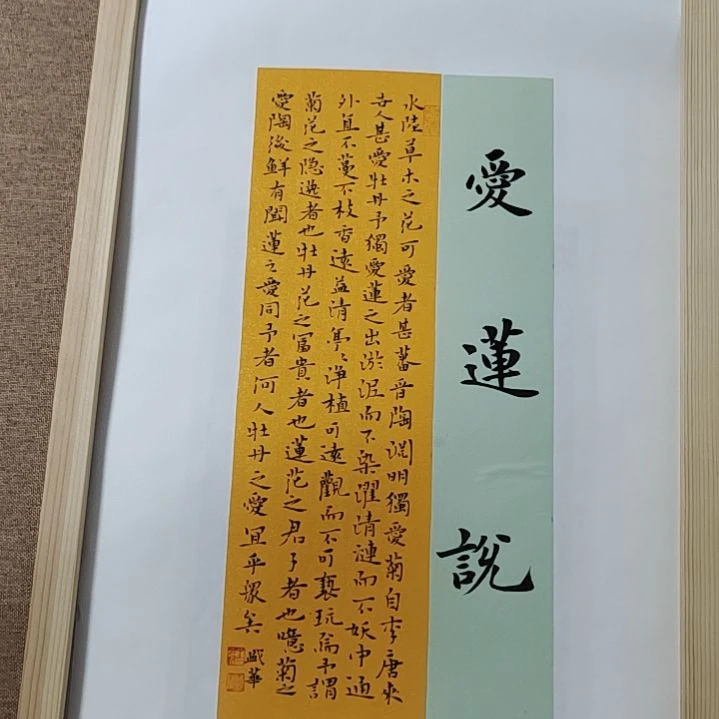 愛蓮說
水陸草木之花可愛者甚蕃晉陶渊明獨愛菊自李唐來
世人甚愛牡丹予獨愛蓮之出淤泥而不染濯清漣而不妖中通
外直不蔓不枝香遠益清亭〻淨植可遠觀而不可褻玩焉予謂
菊花之隐逸者也牡丹花之冨貴者也蓮花之君子者也噫菊之
愛陶後鮮有聞蓮之愛同予者何人牡丹之愛宜乎眾矣